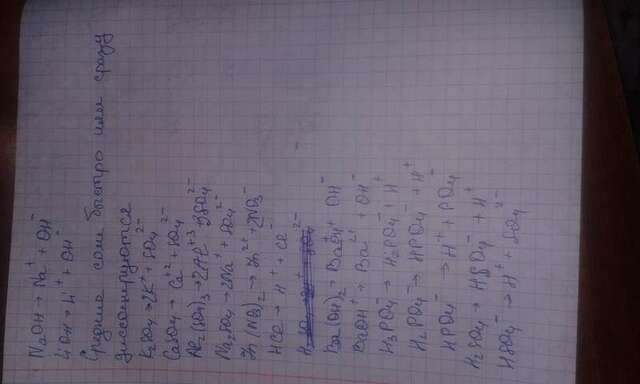 NaOH → Na⁺ + OH⁻
LiOH → Li⁺ + OH⁻
Средние соли быстро или сразу
диссоциируются
K₂SO₄ → 2K⁺ + SO₄²⁻
CaSO₄ → Ca⁺² + SO₄²⁻
Al₂(SO₄)₃ → 2Al⁺³ 3SO₄²⁻
Na₂SO₄ → 2Na⁺ + SO₄²⁻
Zn(NO₃)₂ → Zn²⁺ + 2NO₃⁻
HCl → H⁺ + Cl⁻
Ba(OH)₂ → BaOH⁺ OH⁻
BaOH⁺ → Ba²⁺ + OH⁻
H₃PO₄⁻ → H₂PO₄⁻ + H⁺
H₂PO₄⁻ → HPO₄⁻ + H⁺
HPO₄⁻ → H⁺ + PO₄⁻
H₂SO₄ → HSO₄⁻ + H⁺
HSO₄⁻ → H⁺ + SO₄²⁻